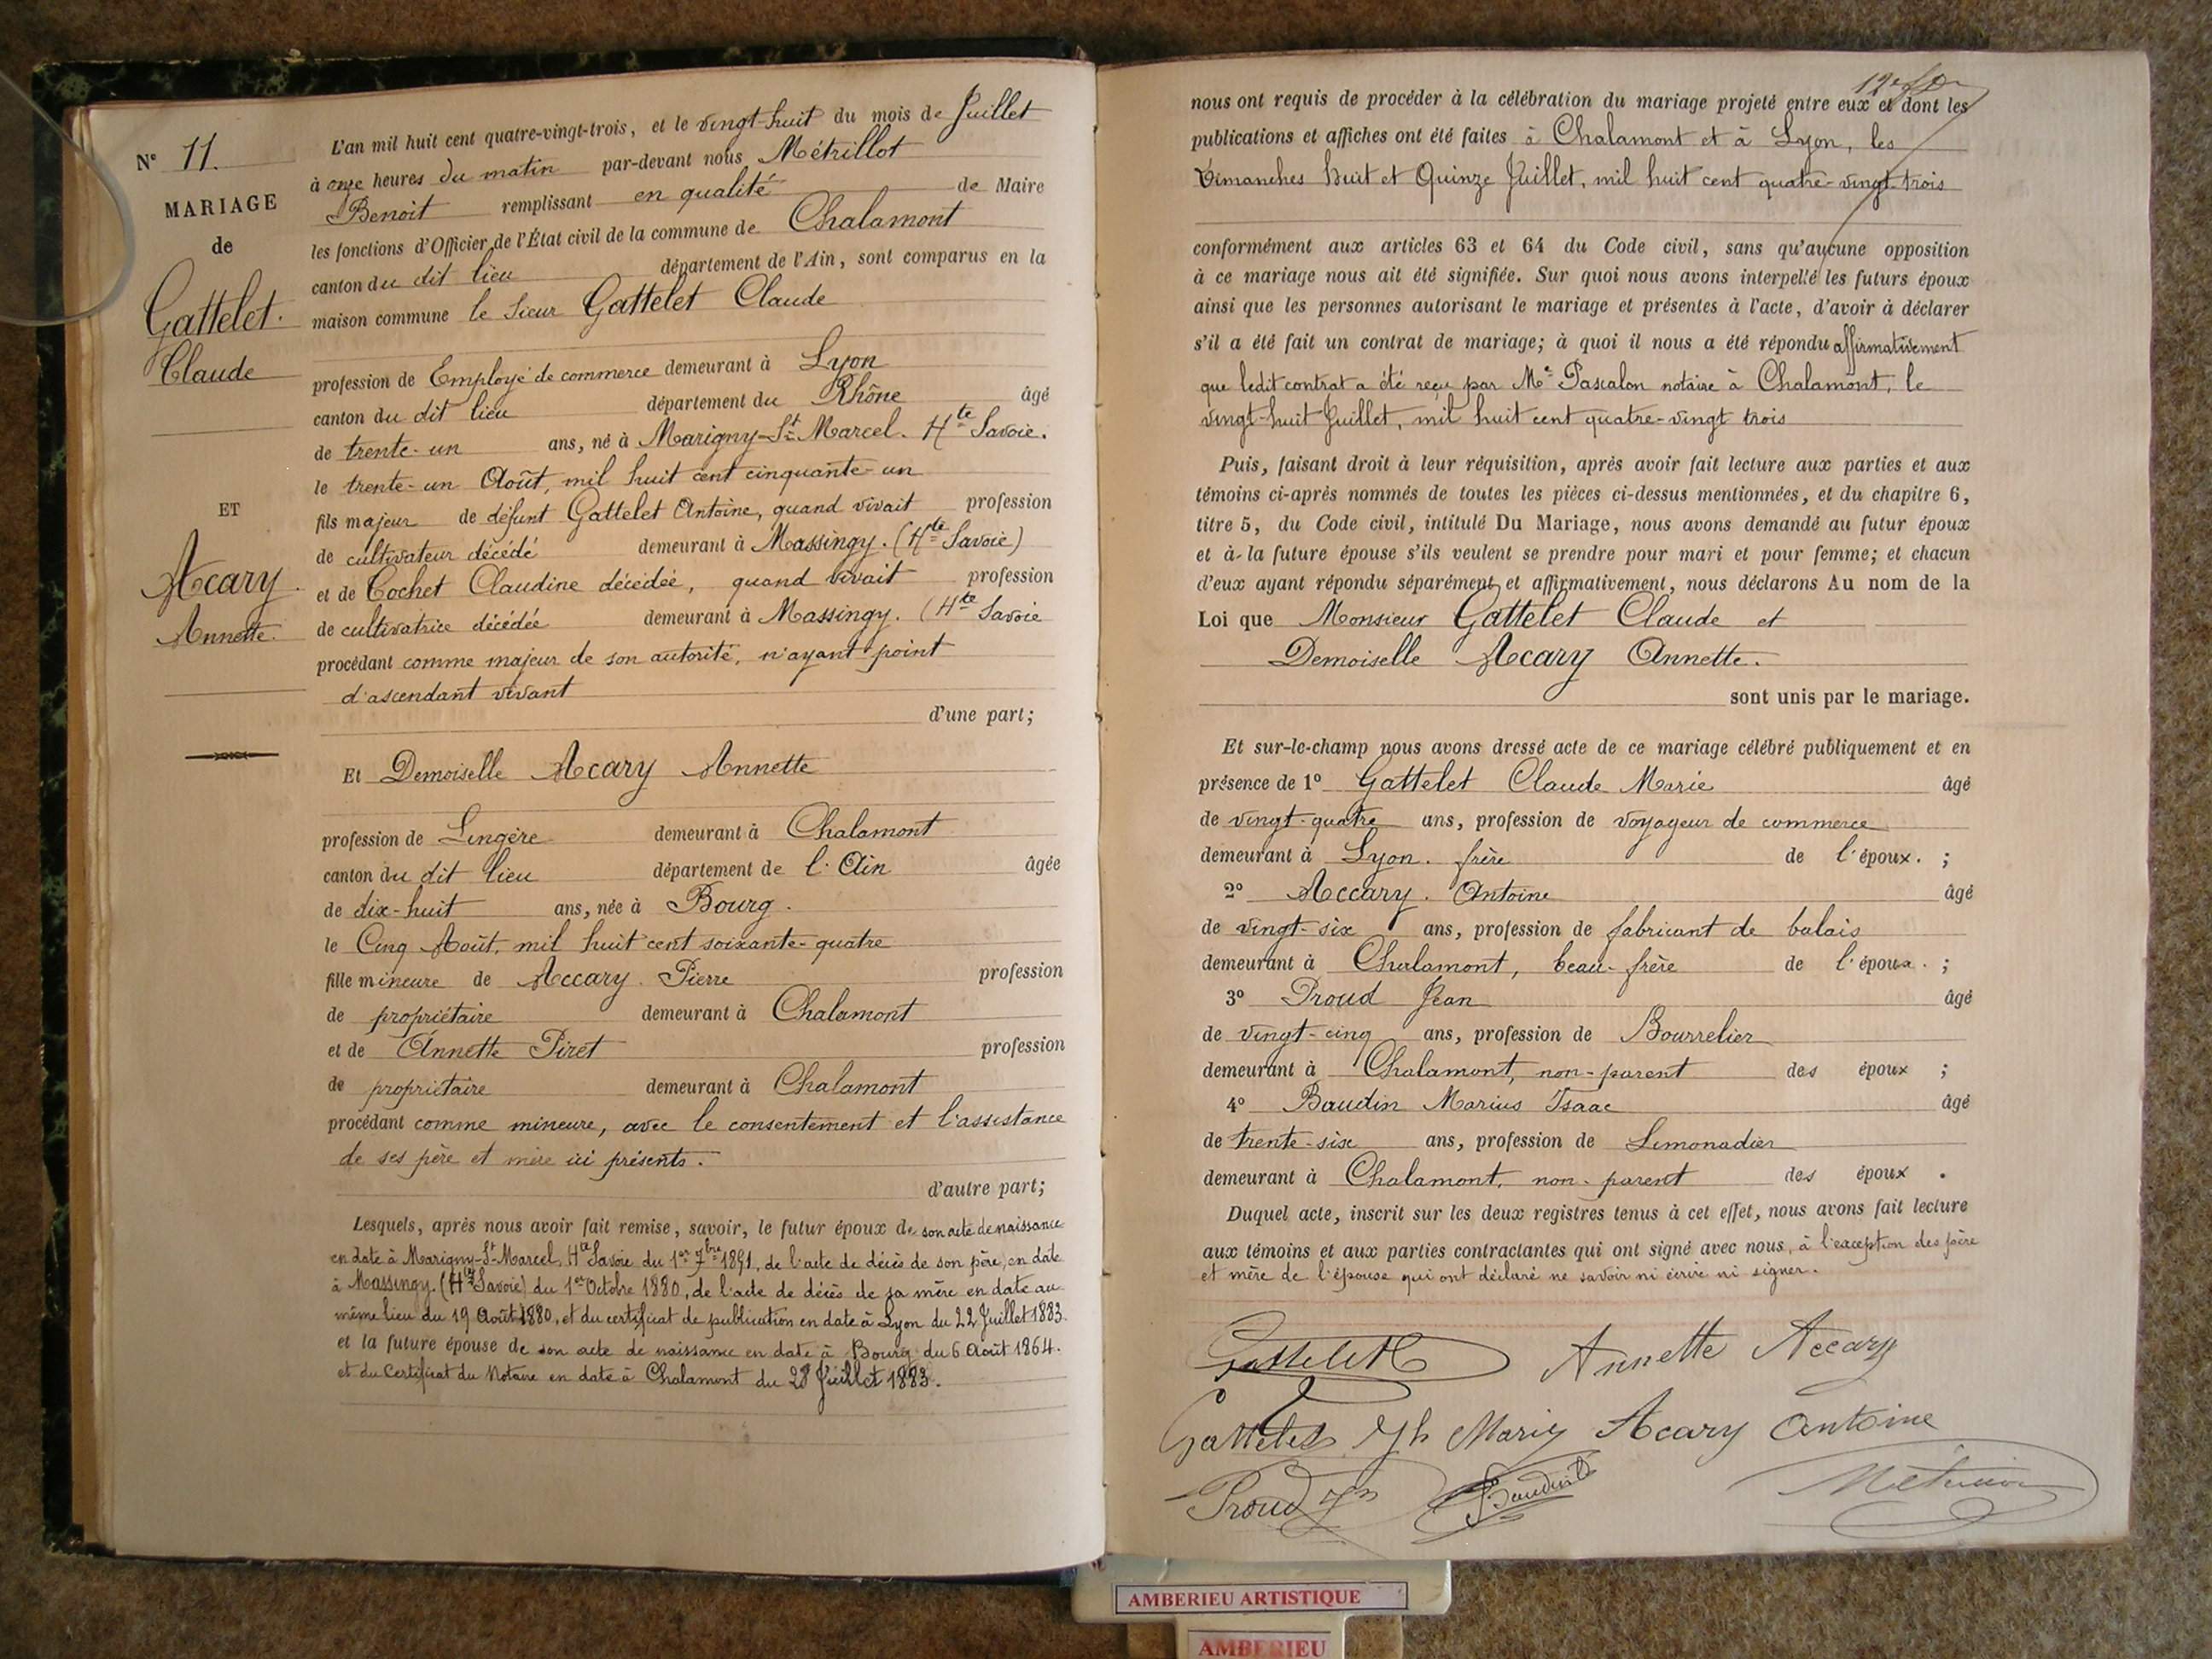 N° 11.
MARIAGE
de
Gattelet.
Claude
ET
Acary.
Annette.
L'an mil huit cent quatre-vingt-trois, et le vingt-huit du mois de Juillet
à onze heures du matin par-devant nous Métrillot
Benoit remplissant en qualité de Maire
les fonctions d'Officier de l'État civil de la commune de Chalamont
canton du dit lieu département de l'Ain, sont comparus en la
maison commune le Sieur Gattelet Claude
profession de Employé de commerce demeurant à Lyon
canton du dit lieu département du Rhône âgé
de trente-un ans, né à Marigny-St Marcel. Hte Savoie.
le trente-un Août, mil huit cent cinquante-un
fils majeur de défunt Gattelet Antoine, quand vivait profession
de cultivateur décédé demeurant à Massingy. (Hte Savoie)
et de Cochet Claudine décédée, quand vivait profession
de cultivatrice décédée demeurant à Massingy. (Hte Savoie
procédant comme majeur de son autorité, n'ayant point
d'ascendant vivant
d'une part;
Et Demoiselle Acary Annette
profession de Lingère demeurant à Chalamont
canton du dit lieu département de l'Ain âgée
de dix-huit ans, née à Bourg.
le Cinq Août, mil huit cent soixante-quatre
fille mineure de Accary Pierre profession
de propriétaire demeurant à Chalamont
et de Annette Piret profession
de propriétaire demeurant à Chalamont
procédant comme mineure, avec le consentement et l'assistance
de ses père et mère ici présents.
d'autre part;
Lesquels, après nous avoir fait remise, savoir, le futur époux de son acte de naissance
en date à Marigny-St-Marcel, Hte Savoie du 1er 7bre 1851, de l'acte de décès de son père, en date
à Massingy. (Hte Savoie) du 1er Octobre 1880, de l'acte de décès de sa mère en date au
même lieu du 19 Août 1880, et du certificat de publication en date à Lyon du 22 Juillet 1883.
et la future épouse de son acte de naissance en date à Bourg du 6 Août 1864.
et du Certificat du Notaire en date à Chalamont du 28 Juillet 1883.
nous ont requis de procéder à la célébration du mariage projeté entre eux et dont les
publications et affiches ont été faites à Chalamont et à Lyon, les
Dimanches huit et Quinze Juillet, mil huit cent quatre-vingt-trois
conformément aux articles 63 et 64 du Code civil, sans qu'aucune opposition
à ce mariage nous ait été signifiée. Sur quoi nous avons interpellé les futurs époux
ainsi que les personnes autorisant le mariage et présentes à l'acte, d'avoir à déclarer
s'il a été fait un contrat de mariage; à quoi il nous a été répondu affirmativement
que ledit contrat a été reçu par Me Pascalon notaire à Chalamont, le
vingt-huit Juillet, mil huit cent quatre-vingt trois
Puis, faisant droit à leur réquisition, après avoir fait lecture aux parties et aux
témoins ci-après nommés de toutes les pièces ci-dessus mentionnées, et du chapitre 6,
titre 5, du Code civil, intitulé Du Mariage, nous avons demandé au futur époux
et à la future épouse s'ils veulent se prendre pour mari et pour femme; et chacun
d'eux ayant répondu séparément et affirmativement, nous déclarons Au nom de la
Loi que Monsieur Gattelet Claude et
Demoiselle Acary Annette.
sont unis par le mariage.
Et sur-le-champ nous avons dressé acte de ce mariage célébré publiquement et en
présence de 1° Gattelet Claude Marie âgé
de vingt-quatre ans, profession de voyageur de commerce
demeurant à Lyon. frère de l'époux. ;
2° Accary. Antoine âgé
de vingt-six ans, profession de fabricant de balais
demeurant à Chalamont, beau-frère de l'époux. ;
3° Proud Jean âgé
de vingt-cinq ans, profession de Bourrelier
demeurant à Chalamont, non-parent des époux ;
4° Baudin Marius Isaac âgé
de trente-six ans, profession de Limonadier
demeurant à Chalamont, non-parent des époux .
Duquel acte, inscrit sur les deux registres tenus à cet effet, nous avons fait lecture
aux témoins et aux parties contractantes qui ont signé avec nous, à l'exception des père
et mère de l'épouse qui ont déclaré ne savoir ni écrire ni signer.
Gattelet Annette Accary
Gattelet Marie Acary Antoine
Proud Jn Baudin
AMBERIEU ARTISTIQUE
AMBERIEU